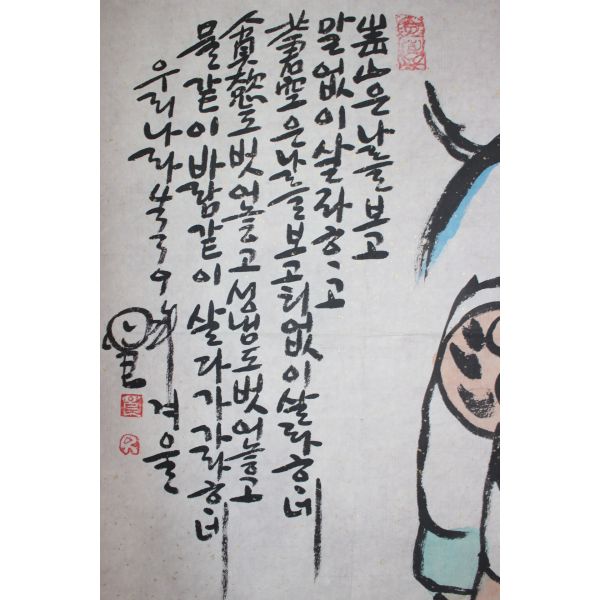 靑山은나를보고
말없이살라ᄒᆞ고
蒼空은나를보고티없이살라ᄒᆞ네
貪慾도벗어놓고성냄도벗어놓고
물같이바람같이살다가가라ᄒᆞ네
우리나라 겨울